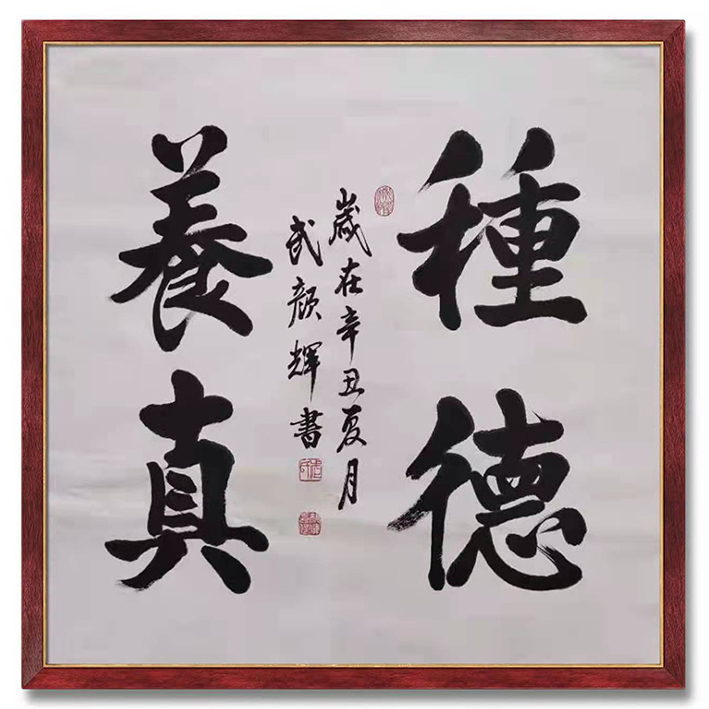 種德
養真
歲在辛丑夏月
武顏輝書